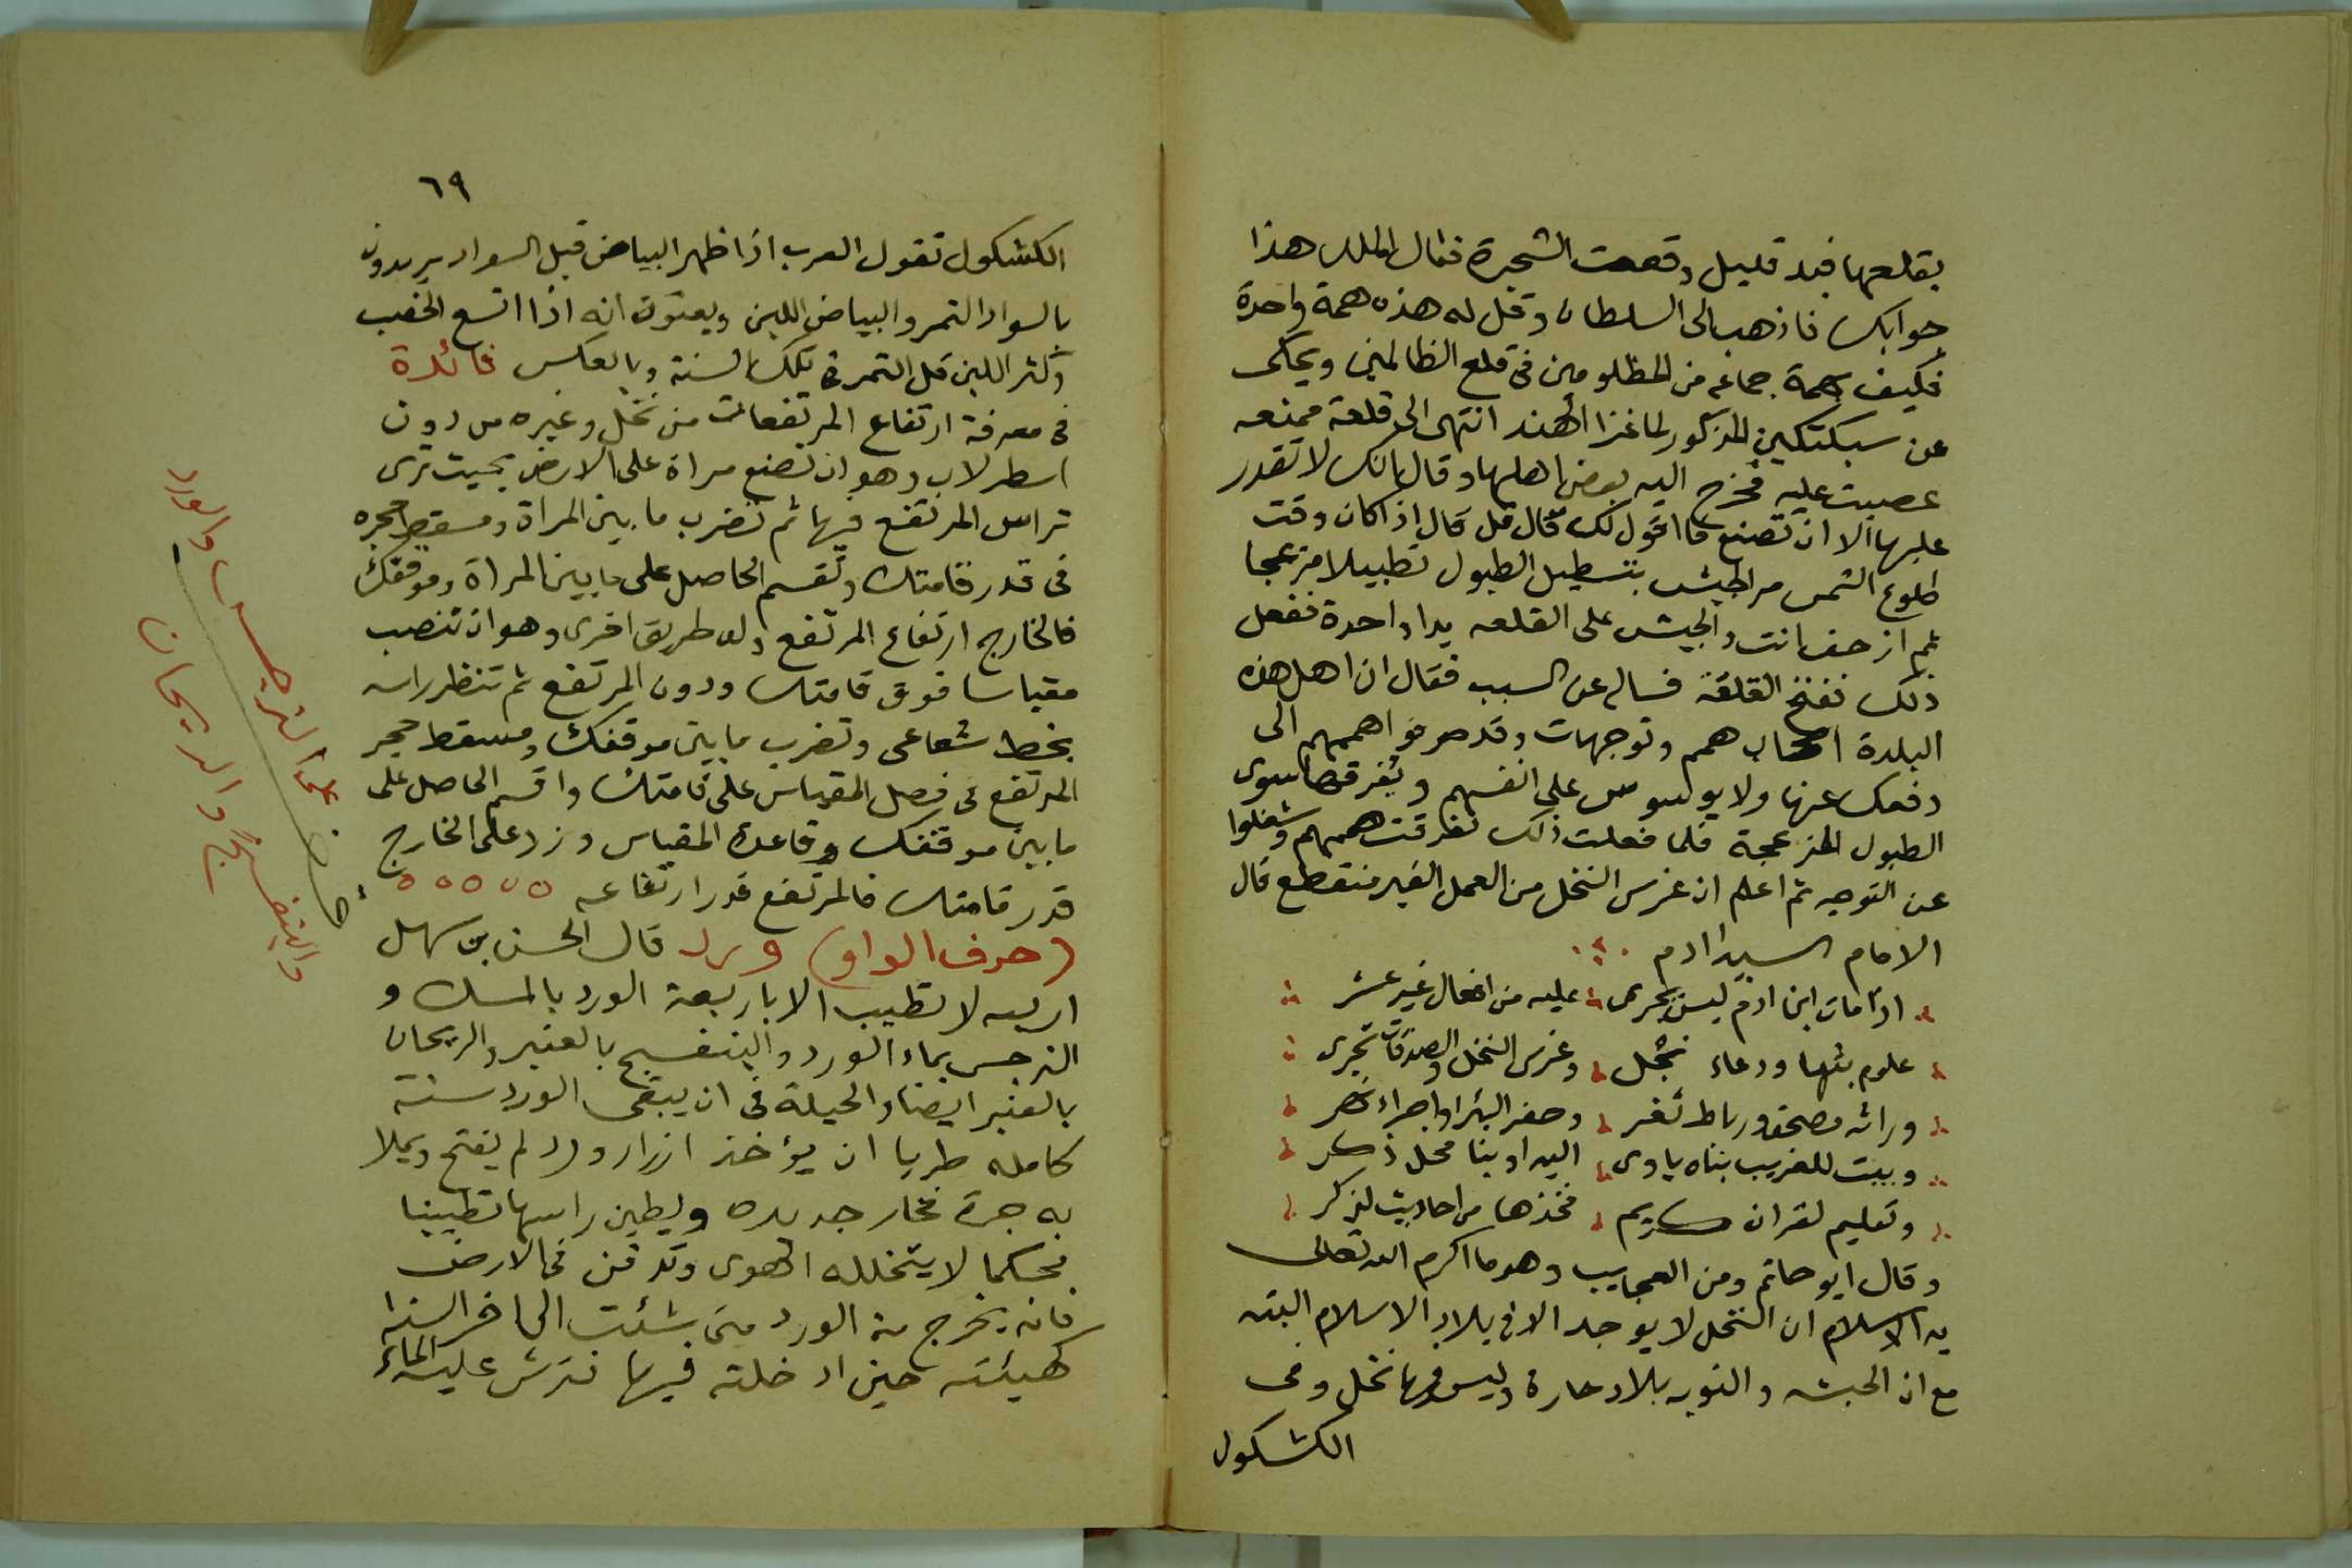 بقلعها فبعد قليل وقعت الشجرة فقال الملك هذا
جوابك فاذهب الى السلطان وقل له هذه همة واحدة
فكيف بهمة جماعه من المظلومين فى قلع الظالمين ويحكى
عن سبكتكين المذكور لما غزا الهند انتهى الى قلعة ممنعه
عصيت عليه فخرج اليه بعض اهلها وقال مالك لا تقدر
عليها الا ان تصنع ما اقول لك قال قل قال اذا كان وقت
طلوع الشمس مر الجيش بتطبيل الطبول تطبيلا مزعجا
ثم ازحف انت والجيش على القلعه يدا واحدة ففعل
ذلك ففتح القلعة فساله عن السبب فقال ان اهل هذه
البلدة اصحاب همم وتوجهات وقد صرفوا هممهم الى
دفعك عنها ولا يوسوس على انفسهم ويفرقها سوى
الطبول المزعجة فلما فعلت ذلك تفرقت هممهم وشغلوا
عن التوجه ثم اعلم ان غرس النخل من العمل الغير منقطع قال
الامام السيد ادم
اذا مات ابن ادم ليس يجرى عليه من افعال غير عشر
علوم بثها ودعاء نجل وغرس النخل والصدقات تجرى
وراثه مصحف ورباط ثغر وحفر البئر او اجراء نهر
وبيت للغريب بناه ياوى اليه او بنا محل ذكر
وتعليم لقران كريم فخذها من احاديث لذكر
وقال ابو حاتم ومن العجايب وهو ما اكرم الله تعالى
به الاسلام ان النخل لا يوجد الا فى بلاد الاسلام البته
مع ان الحبشه والنوبه بلاد حارة وليس فيها نخل وفى
الكشكول
٦٩
الكشكول تقول العرب اذا ظهر البياض قبل السواد يريدون
بالسواد التمر والبياض اللبن ويعنون انه اذا اتسع الخصب
وكثر اللبن قل التمر فى تلك السنة وبالعكس فائدة
فى معرفة ارتفاع المرتفعات من نخل وغيره من دون
اسطرلاب وهو ان تضع مراة على الارض بحيث ترى
تراس المرتفع فيها ثم تضرب ما بين المراة ومسقط حجره
فى قدر قامتك وتقسم الحاصل على ما بين المراة وموقفك
فالخارج ارتفاع المرتفع وله طريق اخرى وهو ان تنصب
مقياسا فوق قامتك ودون المرتفع ثم تنظر راسه
بخط شعاعى وتضرب ما بين موقفك ومسقط حجر
المرتفع فى فضل المقياس على قامتك واقسم الحاصل على
ما بين موقفك وقاعدة المقياس وزد على الخارج
قدر قامتك فالمرتفع قدر ارتفاعه
(حرف الواو) ورد قال الحسن بن سهل
اربعه لا تطيب الا باربعة الورد بالمسك و
النرجس بماء الورد والبنفسج بالعنبر والريحان
بالعنبر ايضا والحيلة فى ان يبقى الورد سنة
كامله طريا ان يؤخذ ازرار ورد لم يفتح ويملا
به جرة فخار جديده ويطين راسها تطيينا
محكما لا يتخلله الهوى وتدفن فى الارض
فانه يخرج منه الورد متى شئت الى اخر السنه
كهيئته حين ادخلته فيها فترش عليه الماء
النرجس والورد
والبنفسج والريحان